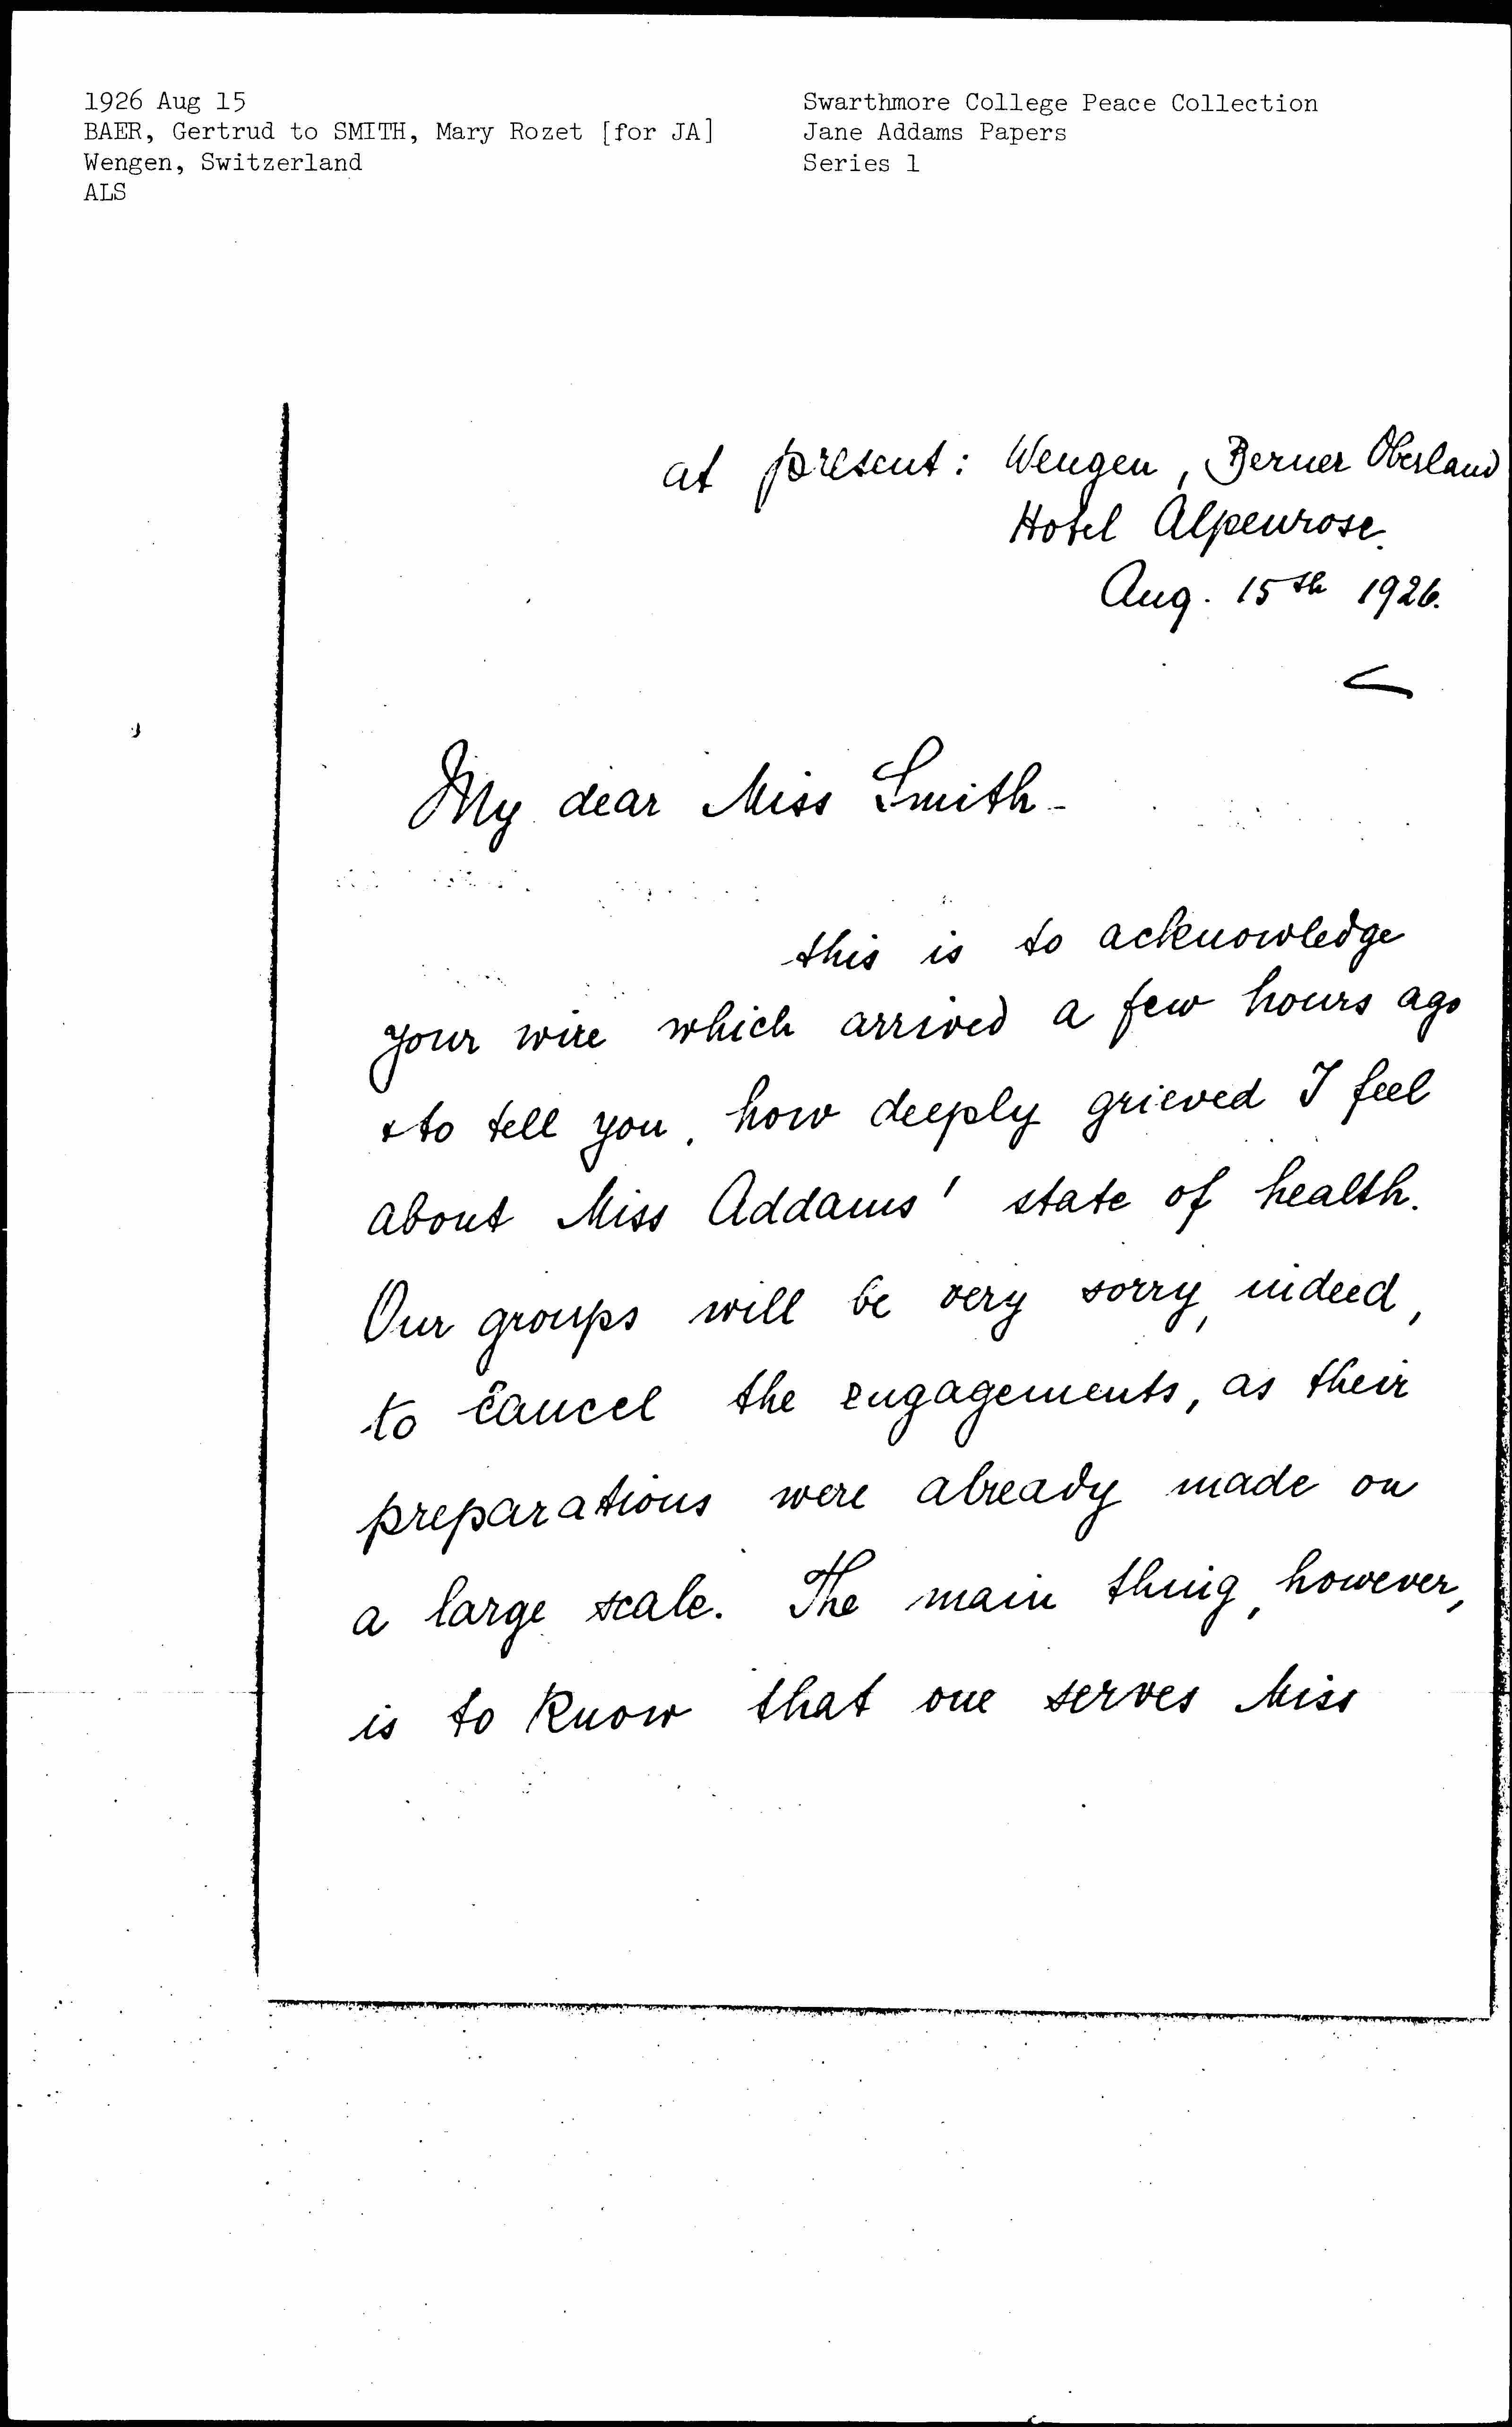 1926 Aug 15
BAER, Gertrud to SMITH, Mary Rozet [for JA]
Wengen, Switzerland
ALS
Swarthmore College Peace Collection
Jane Addams Papers
Series 1
at present: Wengen, Berner Oberland
Hotel Alpenrose.
Aug. 15th 1926.
My dear Miss Smith -
this is to acknowledge
your wire which arrived a few hours ago
& to tell you, how deeply grieved I feel
about Miss Addams' state of health.
Our groups will be very sorry, indeed,
to cancel the engagements, as their
preparations were already made on
a large scale. The main thing, however,
is to know that one serves Miss